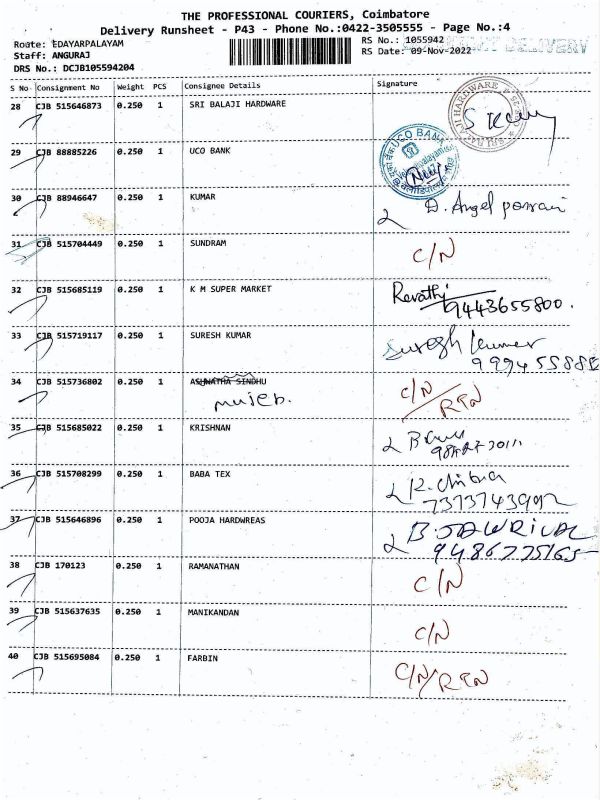 THE PROFESSIONAL COURIERS, Coimbatore
Delivery Runsheet - P43 - Phone No.:0422-3505555 - Page No.:4
Roate: EDAYARPALAYAM
Staff: ANGURAJ
DRS No.: DCJB105594204
RS No.: 1055942
RS Date: 09-Nov-2022
DELIVERY
S No Consignment No Weight PCS Consignee Details Signature
28 CJB 515646873 0.250 1 SRI BALAJI HARDWARE
SRI BALAJI HARDWARE
29 CJB 88885226 0.250 1 UCO BANK
UCO BANK
30 CJB 88946647 0.250 1 KUMAR D. Angel
31 CJB 515704449 0.250 1 SUNDRAM C/N
32 CJB 515685119 0.250 1 K M SUPER MARKET Revathi
9443655800.
33 CJB 515719117 0.250 1 SURESH KUMAR Suresh Kumar
34 CJB 515736802 0.250 1 ASHWATHA SINDHU C/N
mujeb. RTN
35 CJB 515685022 0.250 1 KRISHNAN
36 CJB 515708299 0.250 1 BABA TEX
37 CJB 515646896 0.250 1 POOJA HARDWREAS
9486775165
38 CJB 170123 0.250 1 RAMANATHAN C/N
39 CJB 515637635 0.250 1 MANIKANDAN C/N
40 CJB 515695084 0.250 1 FARBIN C/N/RTN